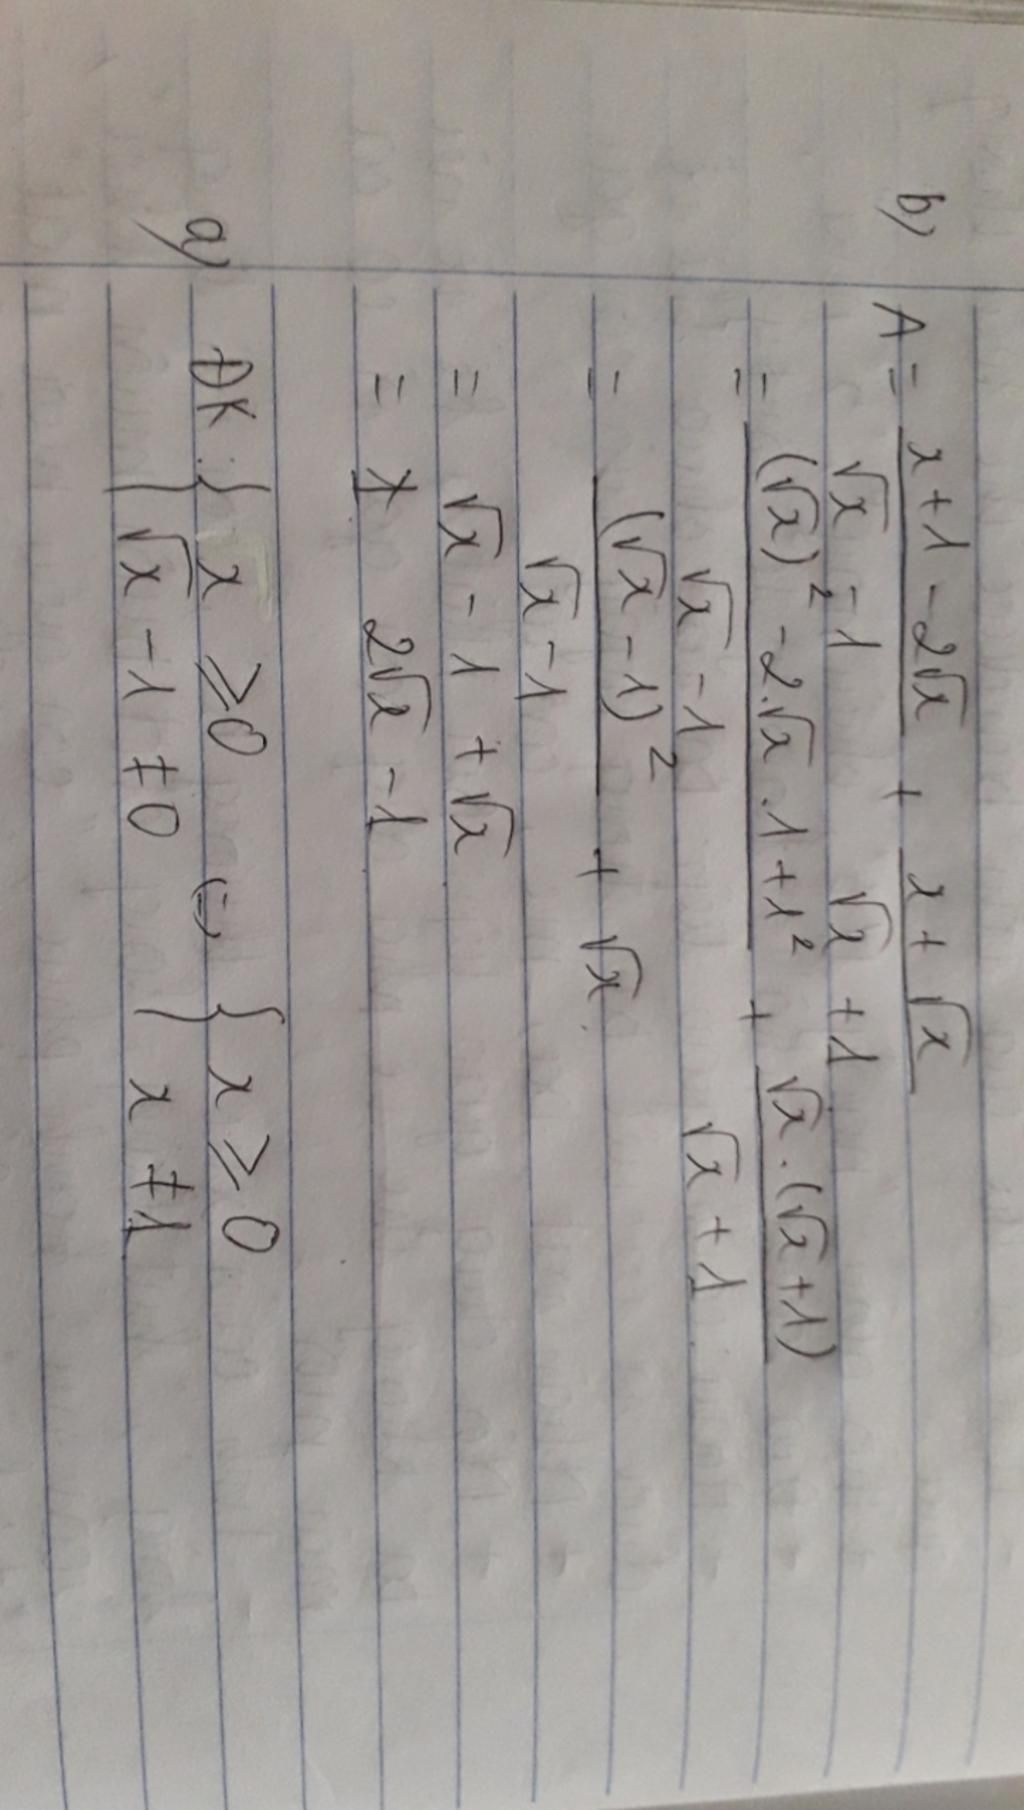 b) A = (x + 1 - 2√x)/(√x - 1) + (x + √x)/(√x + 1)
= ((√x)² - 2.√x.1 + 1²)/(√x - 1) + (√x.(√x + 1))/(√x + 1)
= (√x - 1)²/(√x - 1) + √x.
= √x - 1 + √x
= 2√x - 1
a) ĐK: { x ⩾ 0 (=) { x ⩾ 0
{ √x - 1 ≠ 0 { x ≠ 1